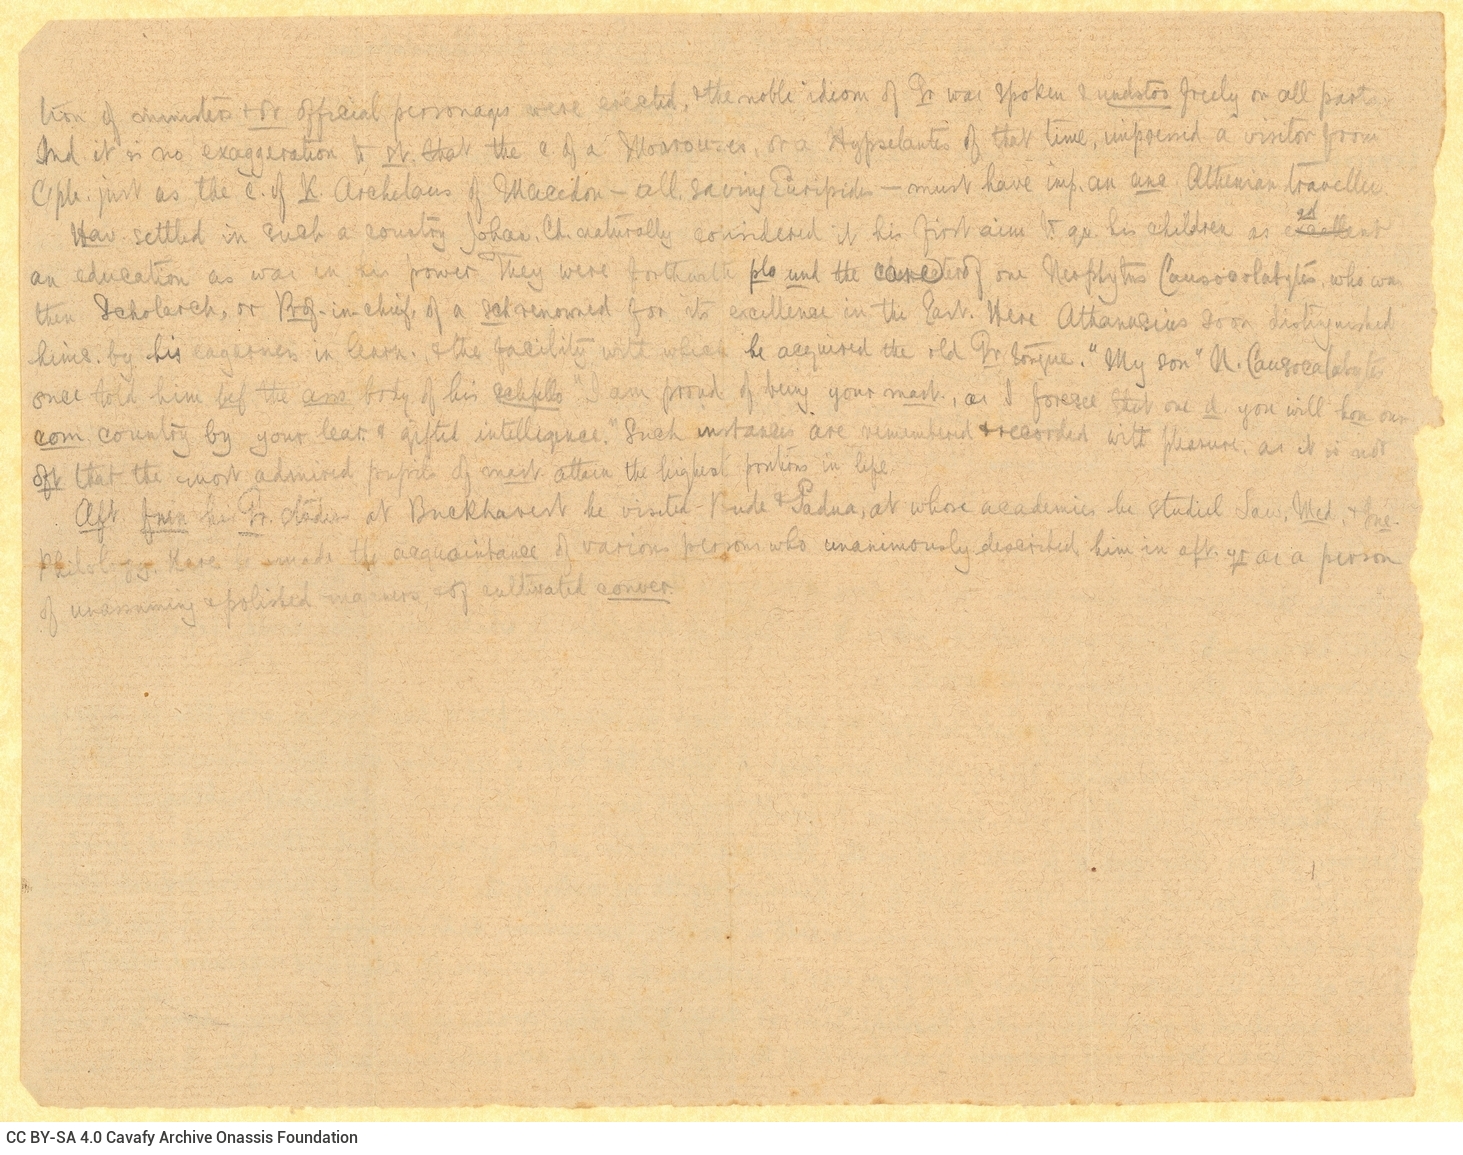 tion of ministers & or official personages were erected, & the noble idiom of Gr was spoken & undstoo freely on all parts.
Ind. it is no exaggeration to st. that the c. of a Mourouzes, or a Hypselantes of that time, impressed a visitor from
C/ple. just as the c. of K. Archelaus of Macedon — all. saving Euripides — must have imp. an anc Athenian traveller.
Hav. settled in such a country Johan. Ch. naturally considered it his first aim to gi. his children as excellent
an education as was in his power. They were forthwith pla und the care of one Neophytus Causocalabytes, who was
then Scholarch, or Prof-in-chief, of a sch renowned for its excellence in the East. Here Athanasius soon distinguished
himse. by his eagerness in learn. & the facility with which he acquired the old Gr tongue. "My son" N. Causocalabytes
once told him bef the ass body of his schfello "I am proud of being your mast., as I foresee that one d. you will hon our
com. country by your lear. & gifted intelligence." Such instances are remembered & recorded with pleasure, as it is not
oft that the most admired pupils of mast attain the highest positions in life.
Aft. finn his Gr. studies at Buckharest he visited Bude & Padua, at whose academies he studied Law, Med., &
Philology. Here he made the acquaintance of various persons who unanimously described him in aft. yr as a person
of unassuming & polished manners & of cultivated conver.
CC BY-SA 4.0 Cavafy Archive Onassis Foundation